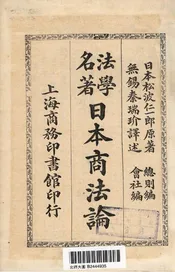 日本松波仁一郎原著　總則編
無錫秦瑞玠譯述　會社編
法學名著
日本商法論
上海商務印書館印行